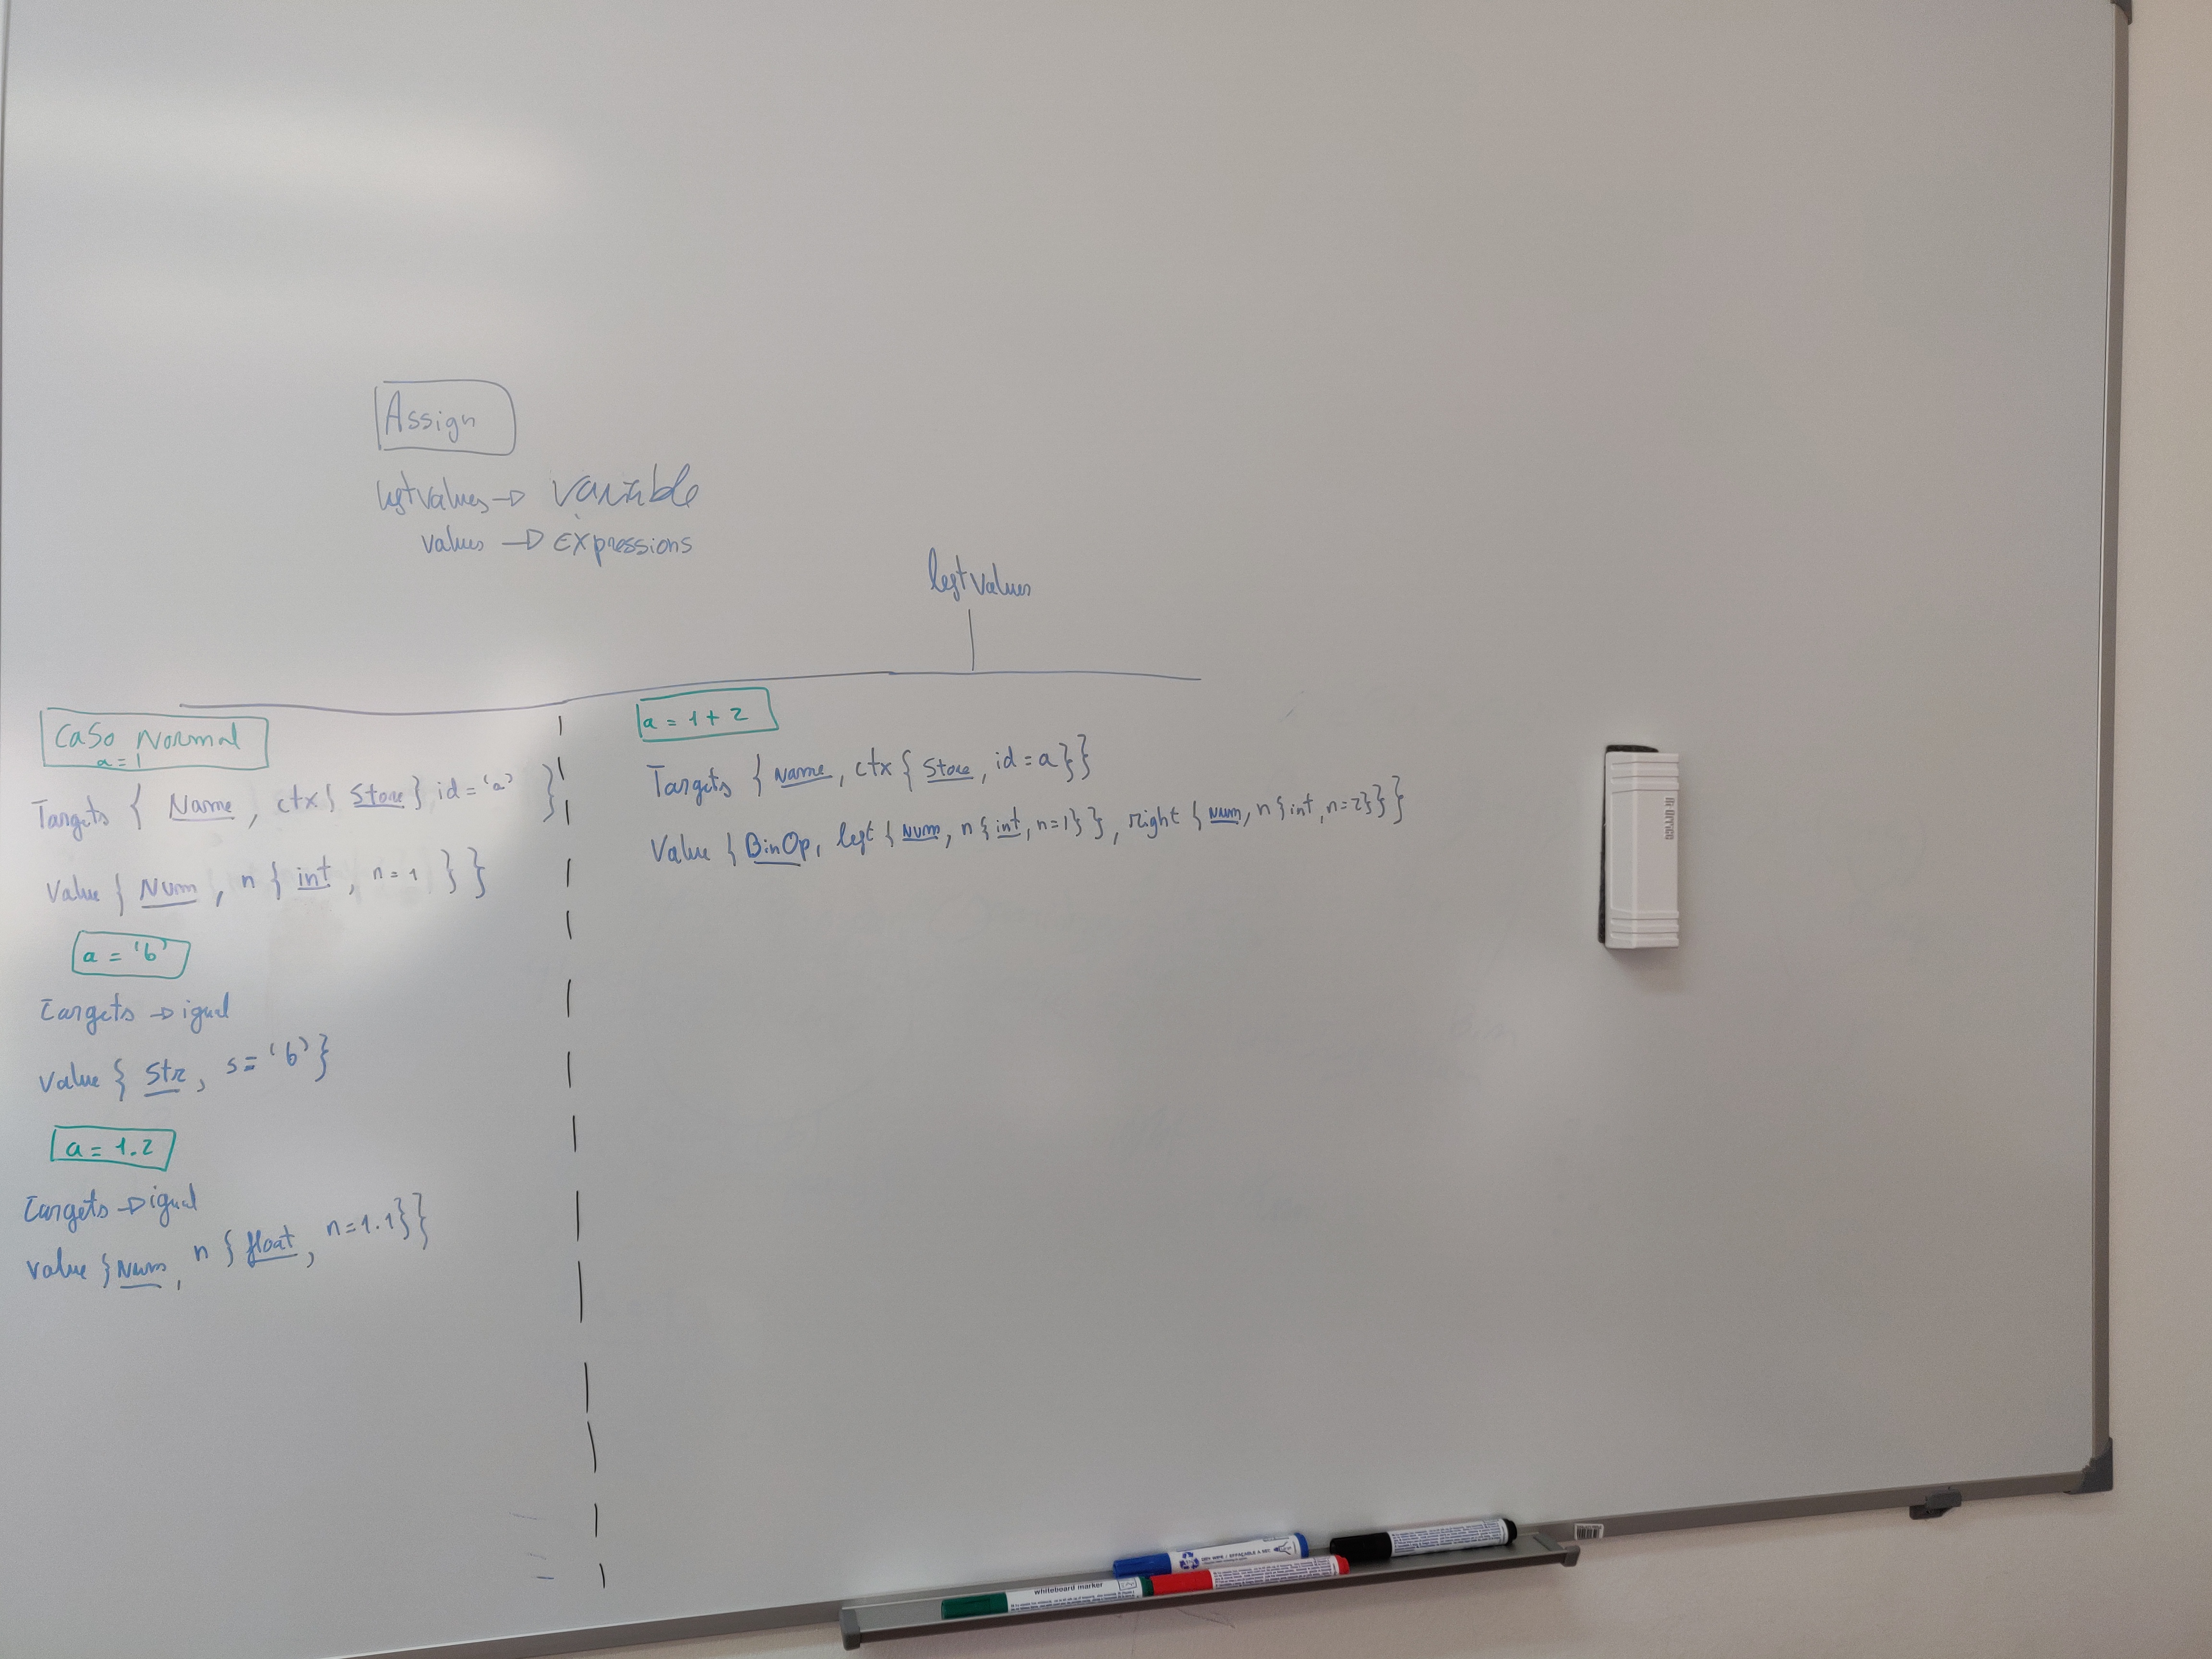 Assign
leftvalues → variable
values → expressions
leftvalues
Caso Normal
a = 1
Targets { Name, ctx { Store } id = 'a' }
Value { Num, n { int, n = 1 } }
a = 'b'
Targets → igual
Value { Str, s = 'b' }
a = 1.2
Targets → igual
Value { Num, n { float, n = 1.1 } }
a = 1 + 2
Targets { Name, ctx { Store, id = a } }
Value { BinOp, left { Num, n { int, n=1 } }, right { Num, n { int, n=2 } } }
whiteboard marker